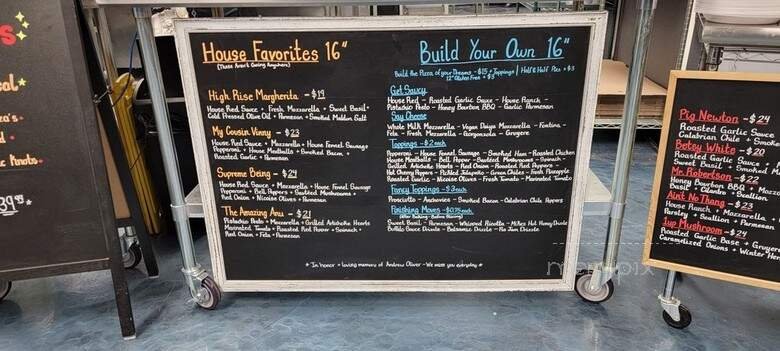 s
al
a's
e Knots
39.99
House Favorites 16"
(These Aren't Going Anywhere)
High Rise Margherita - $19
House Red Sauce + Fresh Mozzarella + Sweet Basil +
Cold Pressed Olive Oil + Parmesan + Smoked Maldon Salt
My Cousin Vinny - $23
House Red Sauce + Mozzarella + House Fennel Sausage
Pepperoni + House Meatballs + Smoked Bacon +
Roasted Garlic + Parmesan
Supreme Being - $24
House Red Sauce + Mozzarella + House Fennel Sausage
Pepperoni + Bell Peppers + Sautéed Mushrooms +
Red Onion + Nicoise Olives + Parmesan
The Amazing Anu - $21
Pistachio Pesto + Mozzarella + Grilled Artichoke Hearts
Marinated Tomato + Roasted Red Pepper + Spinach +
Red Onion + Feta + Parmesan
Build Your Own 16"
Build the Pizza of your Dreams - $15 + Toppings | Half & Half Pies + $3
12" Gluten Free + $3
Get Saucy
House Red - Roasted Garlic Sauce - House Ranch -
Pistachio Pesto - Honey Bourbon BBQ - Garlic Parmesan
Say Cheese
Whole Milk Mozzarella - Vegan Daiya Mozzarella - Fontina -
Feta - Fresh Mozzarella - Gorgonzola - Gruyere
Toppings - $2 each
Pepperoni - House Fennel Sausage - Smoked Ham - Roasted Chicken
House Meatballs - Bell Pepper - Sautéed Mushrooms - Spinach -
Grilled Artichoke Hearts - Roasted Red Pepper - Red Onion -
Hot Cherry Peppers - Pickled Jalapeño - Green Chiles - Fresh Pineapple
Roasted Garlic - Nicoise Olives - Fresh Tomato - Marinated Tomato
Fancy Toppings - $3 each
Prosciutto - Anchovies - Smoked Bacon - Calabrian Chile Peppers
Finishing Moves - $0.75 each
(After Baking - Before Slicing)
Sweet Basil - Parmesan - Whipped Ricotta - Mikes Hot Honey Drizzle
Buffalo Sauce Drizzle - Balsamic Drizzle - Pig Jam Drizzle
* In honor + loving memory of Andrew Oliver - We miss you everyday *
Pig Newton - $24
Roasted Garlic Sauce
Calabrian Chile + Smoke
Betsy White - $20
Roasted Garlic Sauce +
Sweet Basil + Smoked M
Mr. Robertson - $23
Honey Bourbon BBQ + Mozz
Basil + Cilantro + Scallion
Ain't No Thang - $23
House Ranch + Mozzarella
Parsley + Scallion + Parmesan
1up Mushroom - $24
Roasted Garlic Base + Gruyere
Caramelized Onions + Winter Her
menupix